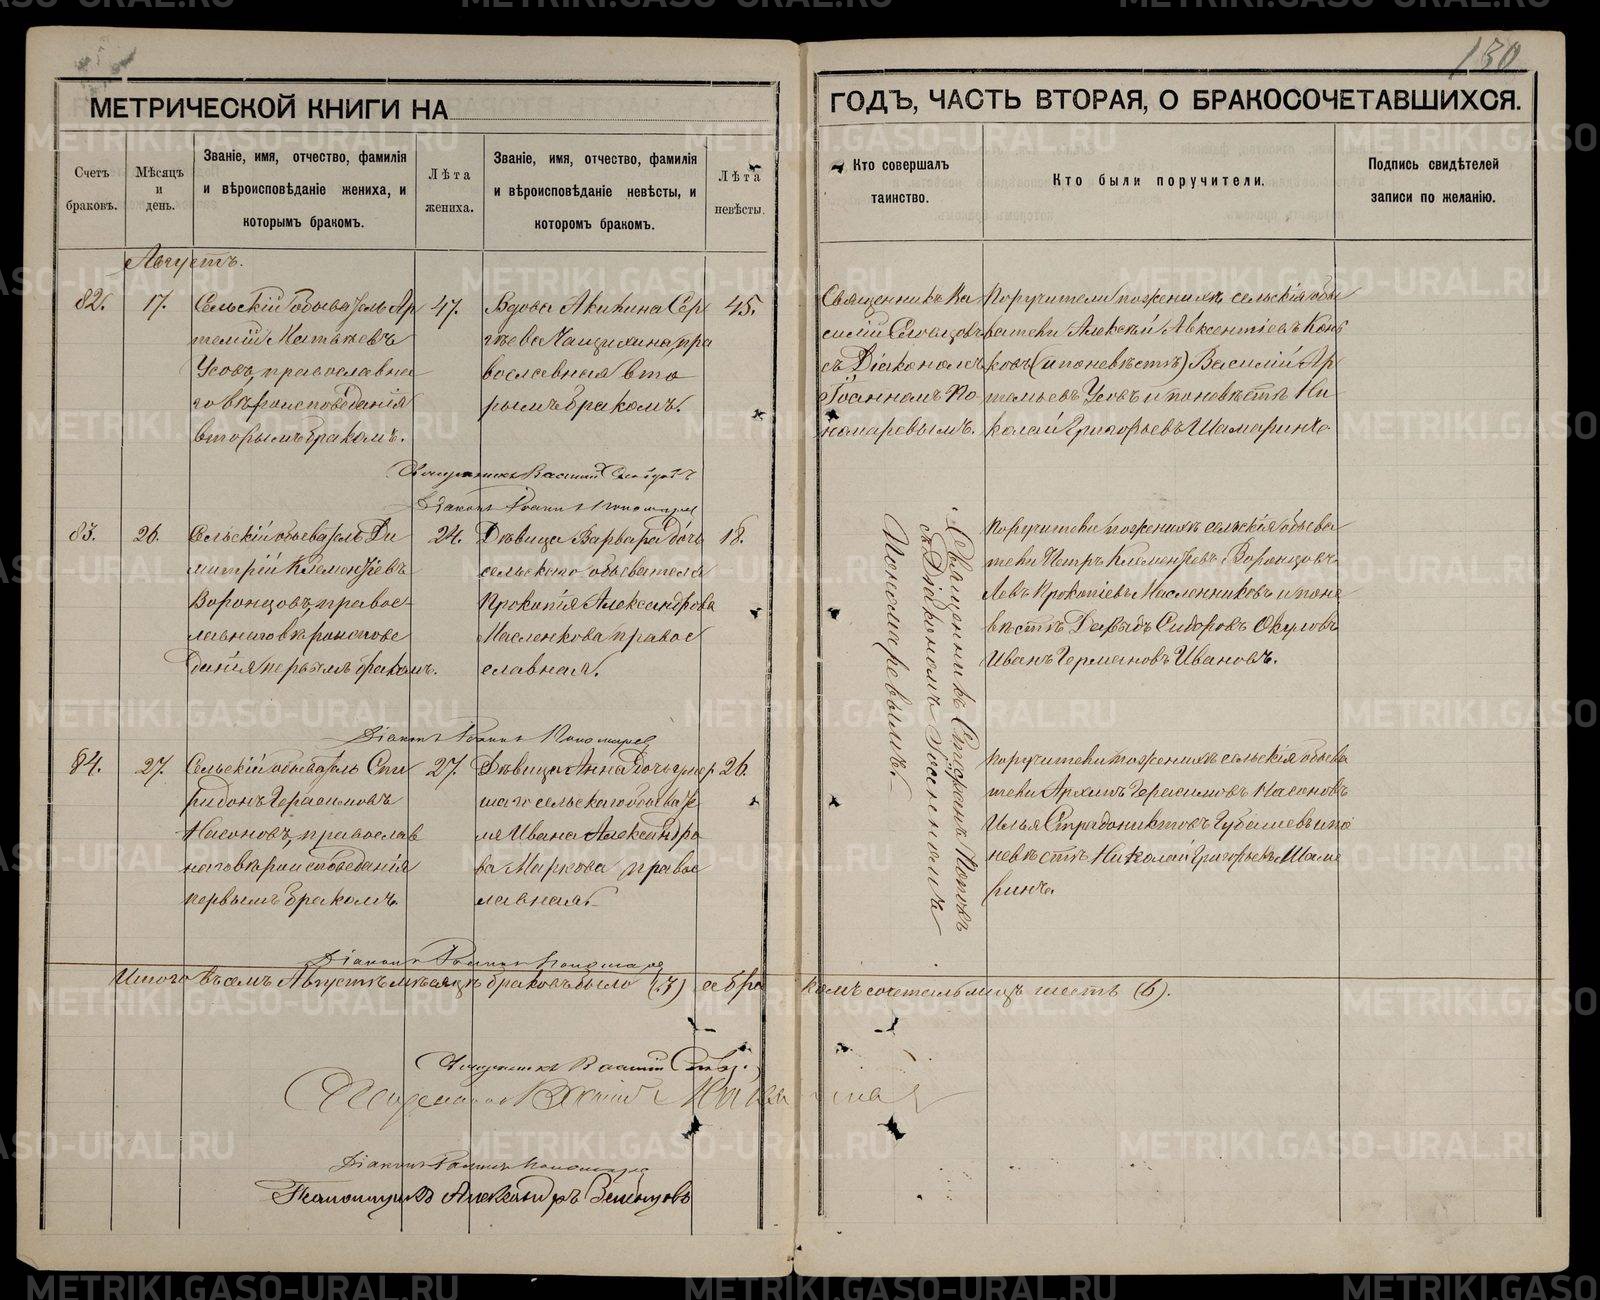 130
МЕТРИЧЕСКОЙ КНИГИ НА
ГОДЪ, ЧАСТЬ ВТОРАЯ, О БРАКОСОЧЕТАВШИХСЯ.
Счетъ
браковъ.
Мѣсяцъ
и
день.
Званіе, имя, отчество, фамилія
и вѣроисповѣданіе жениха, и
которымъ бракомъ.
Лѣта
жениха.
Званіе, имя, отчество, фамилія
и вѣроисповѣданіе невѣсты, и
которомъ бракомъ.
Лѣта
невѣсты.
Кто совершалъ
таинство.
Кто были поручители.
Подпись свидѣтелей
записи по желанію.
Августъ.
82.
17.
Сельскій обыватель Ар
темій Матвѣевъ
Усовъ, православна
го вѣроисповѣданія
вторымъ бракомъ.
47.
Вдова Акилина Сер
гѣева Чащихина, пра
вославная вто
рымъ бракомъ.
45.
Священникъ Ва
силій
съ Діакономъ
Іоанномъ По
номаревымъ.
Поручители по женихѣ сельскія обы
ватели Алексѣй Авксентіевъ
(и по невѣстѣ) Василій Ар
темьевъ Усовъ и по невѣстѣ Ни
колай Григорьевъ Шамаринъ
Священникъ Василій
Діаконъ Іоаннъ Пономарев
83.
26.
Сельскій обыватель Ди
митрій Клементіевъ
Воронцовъ, правос
лавнаго вѣроисповѣ
данія первымъ бракомъ.
24.
Дѣвица Варвара дочь
сельскаго обывателя
Прокопія Александрова
Масленкова правос
славная.
18.
Священникъ Стефанъ Поповъ
съ Діакономъ Іоанномъ
Пономаревымъ.
Поручители по женихѣ сельскія обыва
тели Петръ Клементіевъ Воронцовъ
Левъ Прокопіевъ Масленниковъ и по не
вѣстѣ Давыдъ Сидоровъ Окуловъ
Иванъ Германовъ Ивановъ.
Діаконъ Іоаннъ Пономарев
84.
27.
Сельскій обыватель Спи
ридонъ Герасимовъ
Насоновъ, православ
наго вѣроисповеданія
первымъ бракомъ.
27.
Дѣвица Анна дочь умер
шаго сельскаго обывате
ля Ивана Александро
ва Маркова правос
лавная.
26.
Поручители по женихѣ сельскія обыва
тели Архипъ Герасимовъ Насоновъ
Илья Губашевъ и по
невѣстѣ Николай Григорьевъ Шама
ринъ.
Діаконъ Іоаннъ Пономарев
Итого въ семъ Августѣ мѣсяцѣ браковъ было (3) а бра
комъ сочетавшихся шесть (6).
Священникъ Василій
Діаконъ Іоаннъ Пономарев
Псаломщикъ Александръ
METRIKI.GASO-URAL.RU